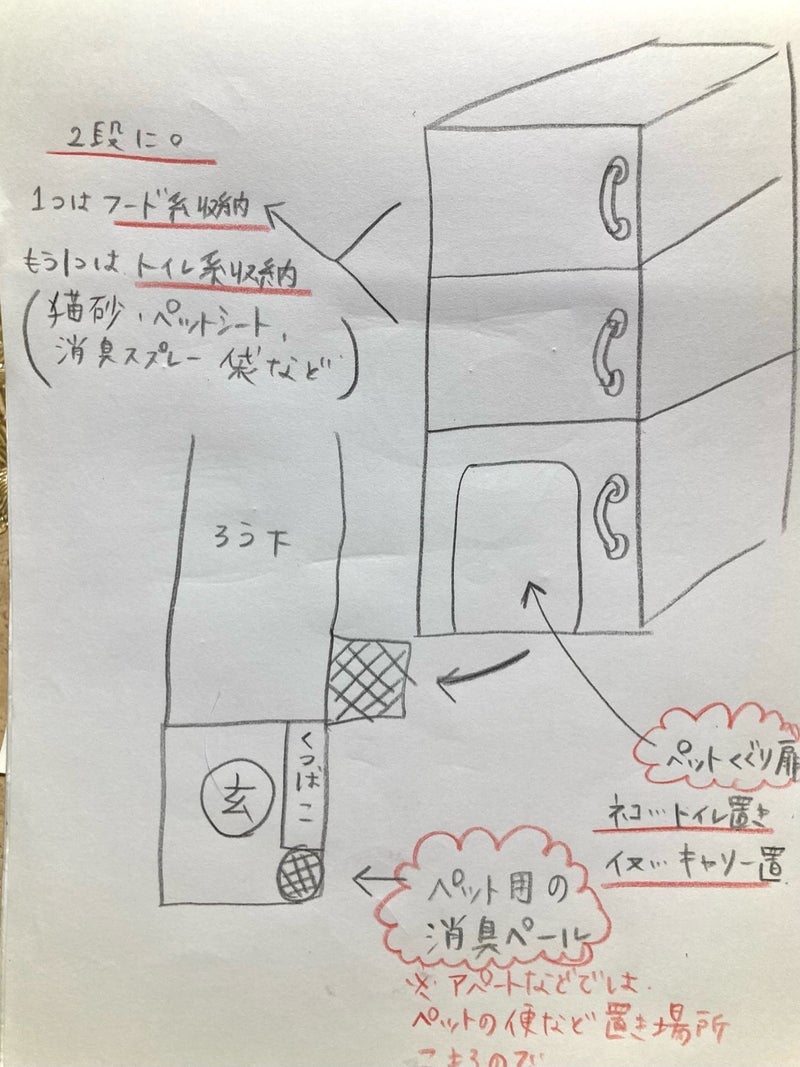 2段に。
1つはフード系収納
もう1つはトイレ系収納
(猫砂、ペットシート、
消臭スプレー 袋など)
ろう下
くつばこ
玄
ペットくぐり扉
ネコ…トイレ置き
イヌ…キャリー置
ペット用の
消臭ペール
※アパートなどでは
ペットの便など置き場所
こまるので